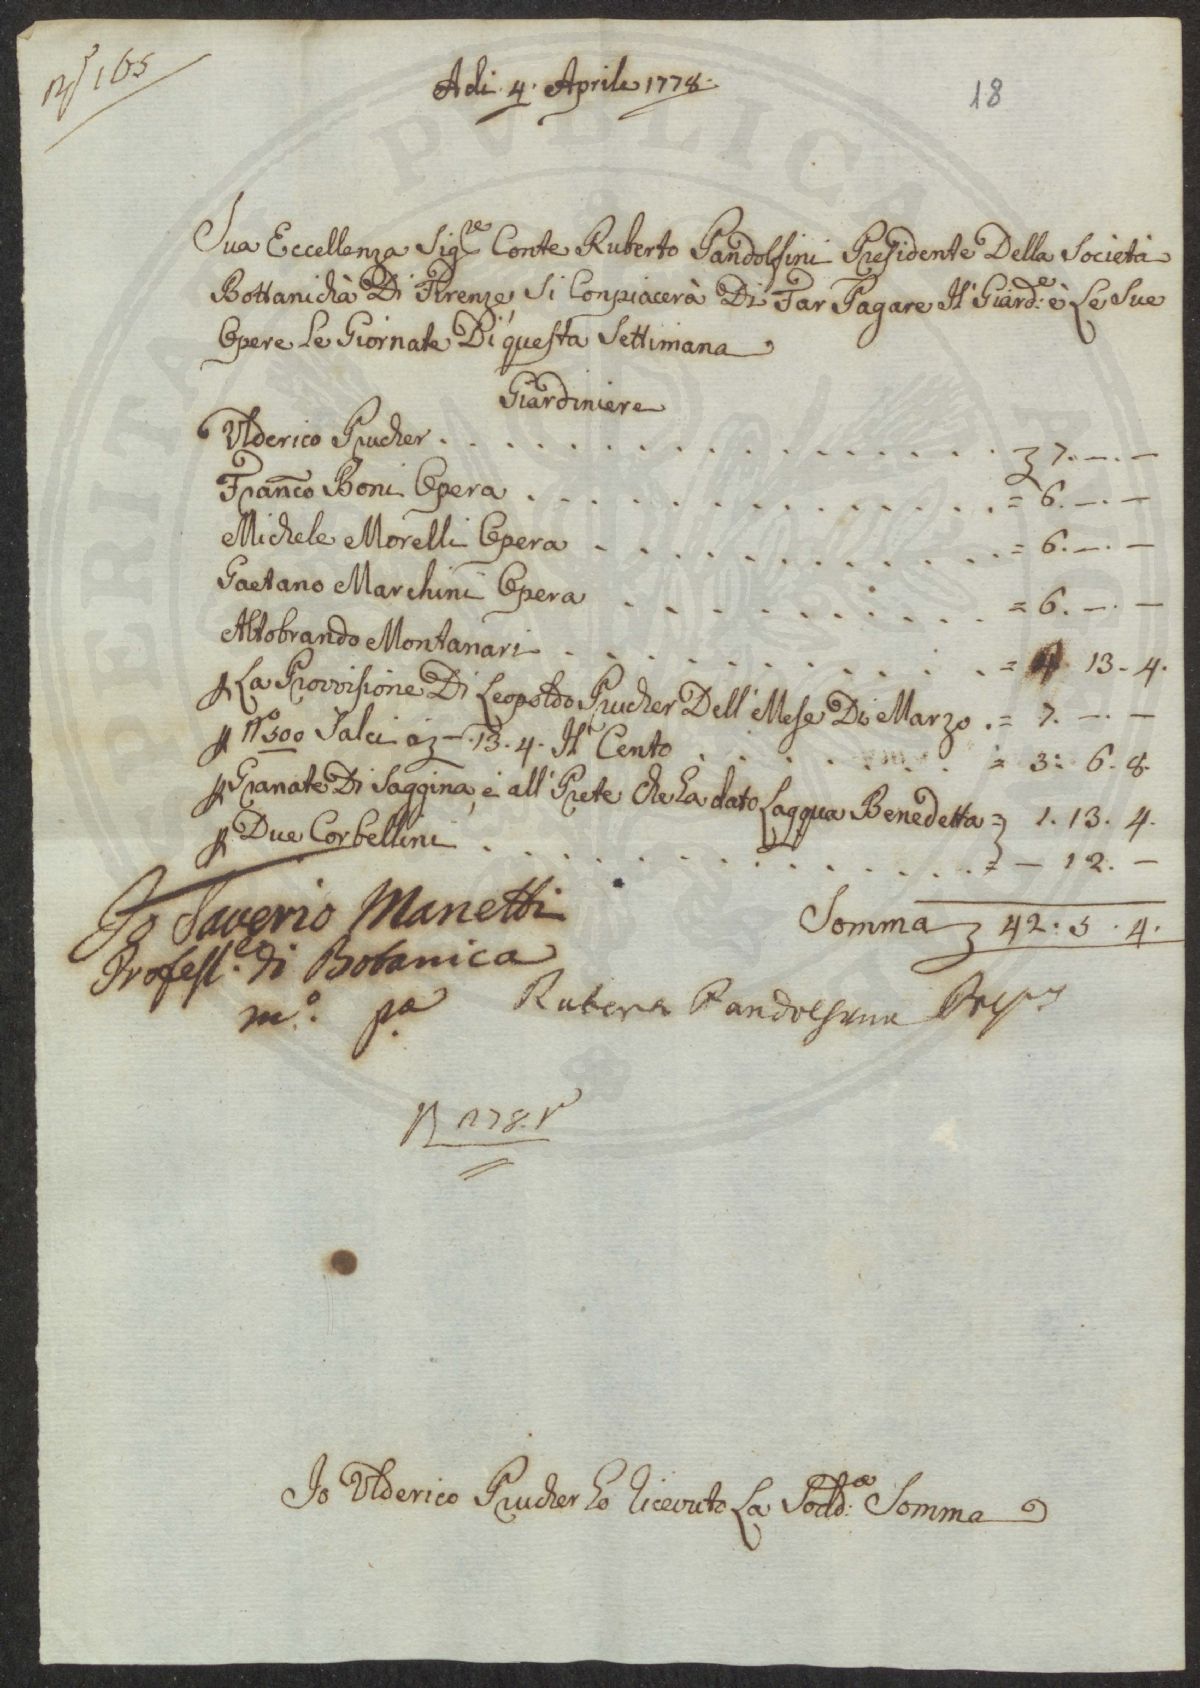 N° 165
Adi. 4. Aprile 1778.
18
Sua Eccellenza Sig.re Conte Ruberto Pandolfini Presidente Della Società
Bottanichà Di Firenze, Si Conpiacerà Di Far Pagare Il Giard.e è Le Sue
Opere Le Giornate Di questa Settimana
Giardiniere
Ulderico Prucher . . . 7. — . —
Franco Boni Opera . . . = 6. — . —
Michele Morelli Opera . . . = 6. — . —
Gaetano Marchini Opera . . . = 6. — . —
Altobrando Montanari . . . = 4 13 - 4.
p La Provvisione Di Leopoldo Prucher Dell' Mese Di Marzo . = 7. — . —
p N° 500 Salci a — . 13. 4. Il Cento . . . = 3: 6. 8.
p Granate Di Saggina, è all' Prete che ha dato Laqqua Benedetta = 1. 13. 4.
p Due Corbellini . . . = — 12. —
Somma 42: 5. 4.
Io Saverio Manetti
Profess.e di Botanica
m.o pa
Pandolfini
178
Io Ulderico Prucher ho ricevuto La Sodd.a Somma
PVBLICAE